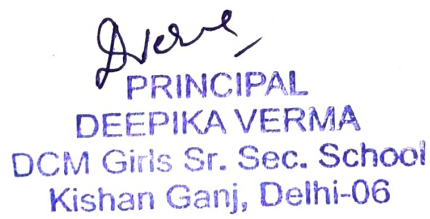 Dverma
PRINCIPAL
DEEPIKA VERMA
DCM Girls Sr. Sec. School
Kishan Ganj, Delhi-06